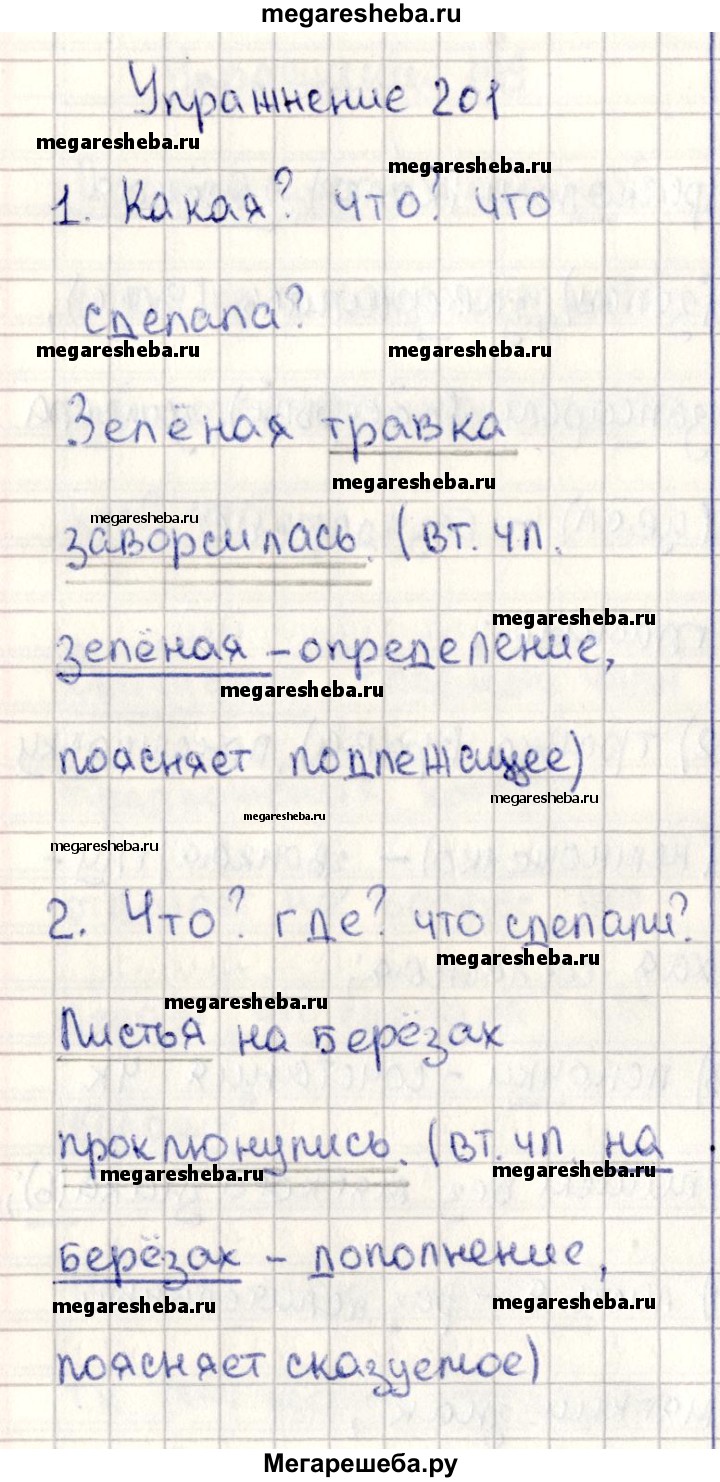 megaresheba.ru
Упражнение 201
megaresheba.ru
megaresheba.ru
1. Какая? что? что
сделала?
megaresheba.ru megaresheba.ru
Зелёная травка
megaresheba.ru
megaresheba.ru
заворсилась. (вт. чл.
megaresheba.ru
зелёная - определение,
megaresheba.ru
поясняет подлежащее)
megaresheba.ru
megaresheba.ru
megaresheba.ru
2. Что? где? что сделали?
megaresheba.ru
megaresheba.ru
Листья на берёзах
проклюнулись. (вт. чл. на
megaresheba.ru megaresheba.ru
берёзах - дополнение,
megaresheba.ru megaresheba.ru
поясняет сказуемое)
Мегарешеба.ру